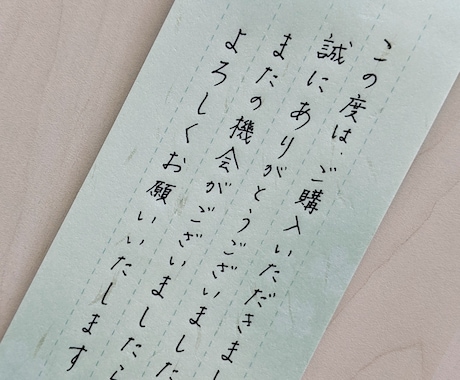 この度は、ご購入いただきまし
誠にありがとうございました
またの機会がございましたら
よろしくお願いいたします